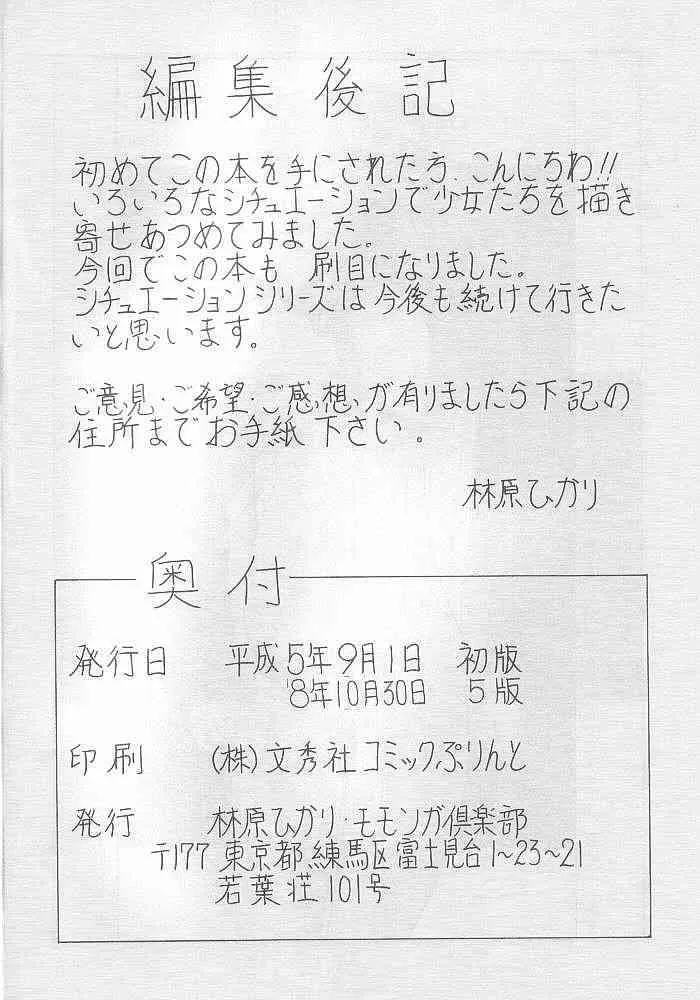 編集後記
初めてこの本を手にされた方、こんにちわ!!
いろいろなシチュエーションで少女たちを描き
寄せあつめてみました。
今回でこの本も　刷目になりました。
シチュエーションシリーズは今後も続けて行きた
いと思います。
ご意見・ご希望・ご感想、が有りましたら下記の
住所までお手紙下さい。
林原ひかり
奥付
発行日　平成5年9月1日　初版
'8年10月30日　5版
印刷　(株)文秀社コミックぷりんと
発行　林原ひかり・モモンガ倶楽部
〒177 東京都練馬区富士見台1〜23〜21
若葉荘101号